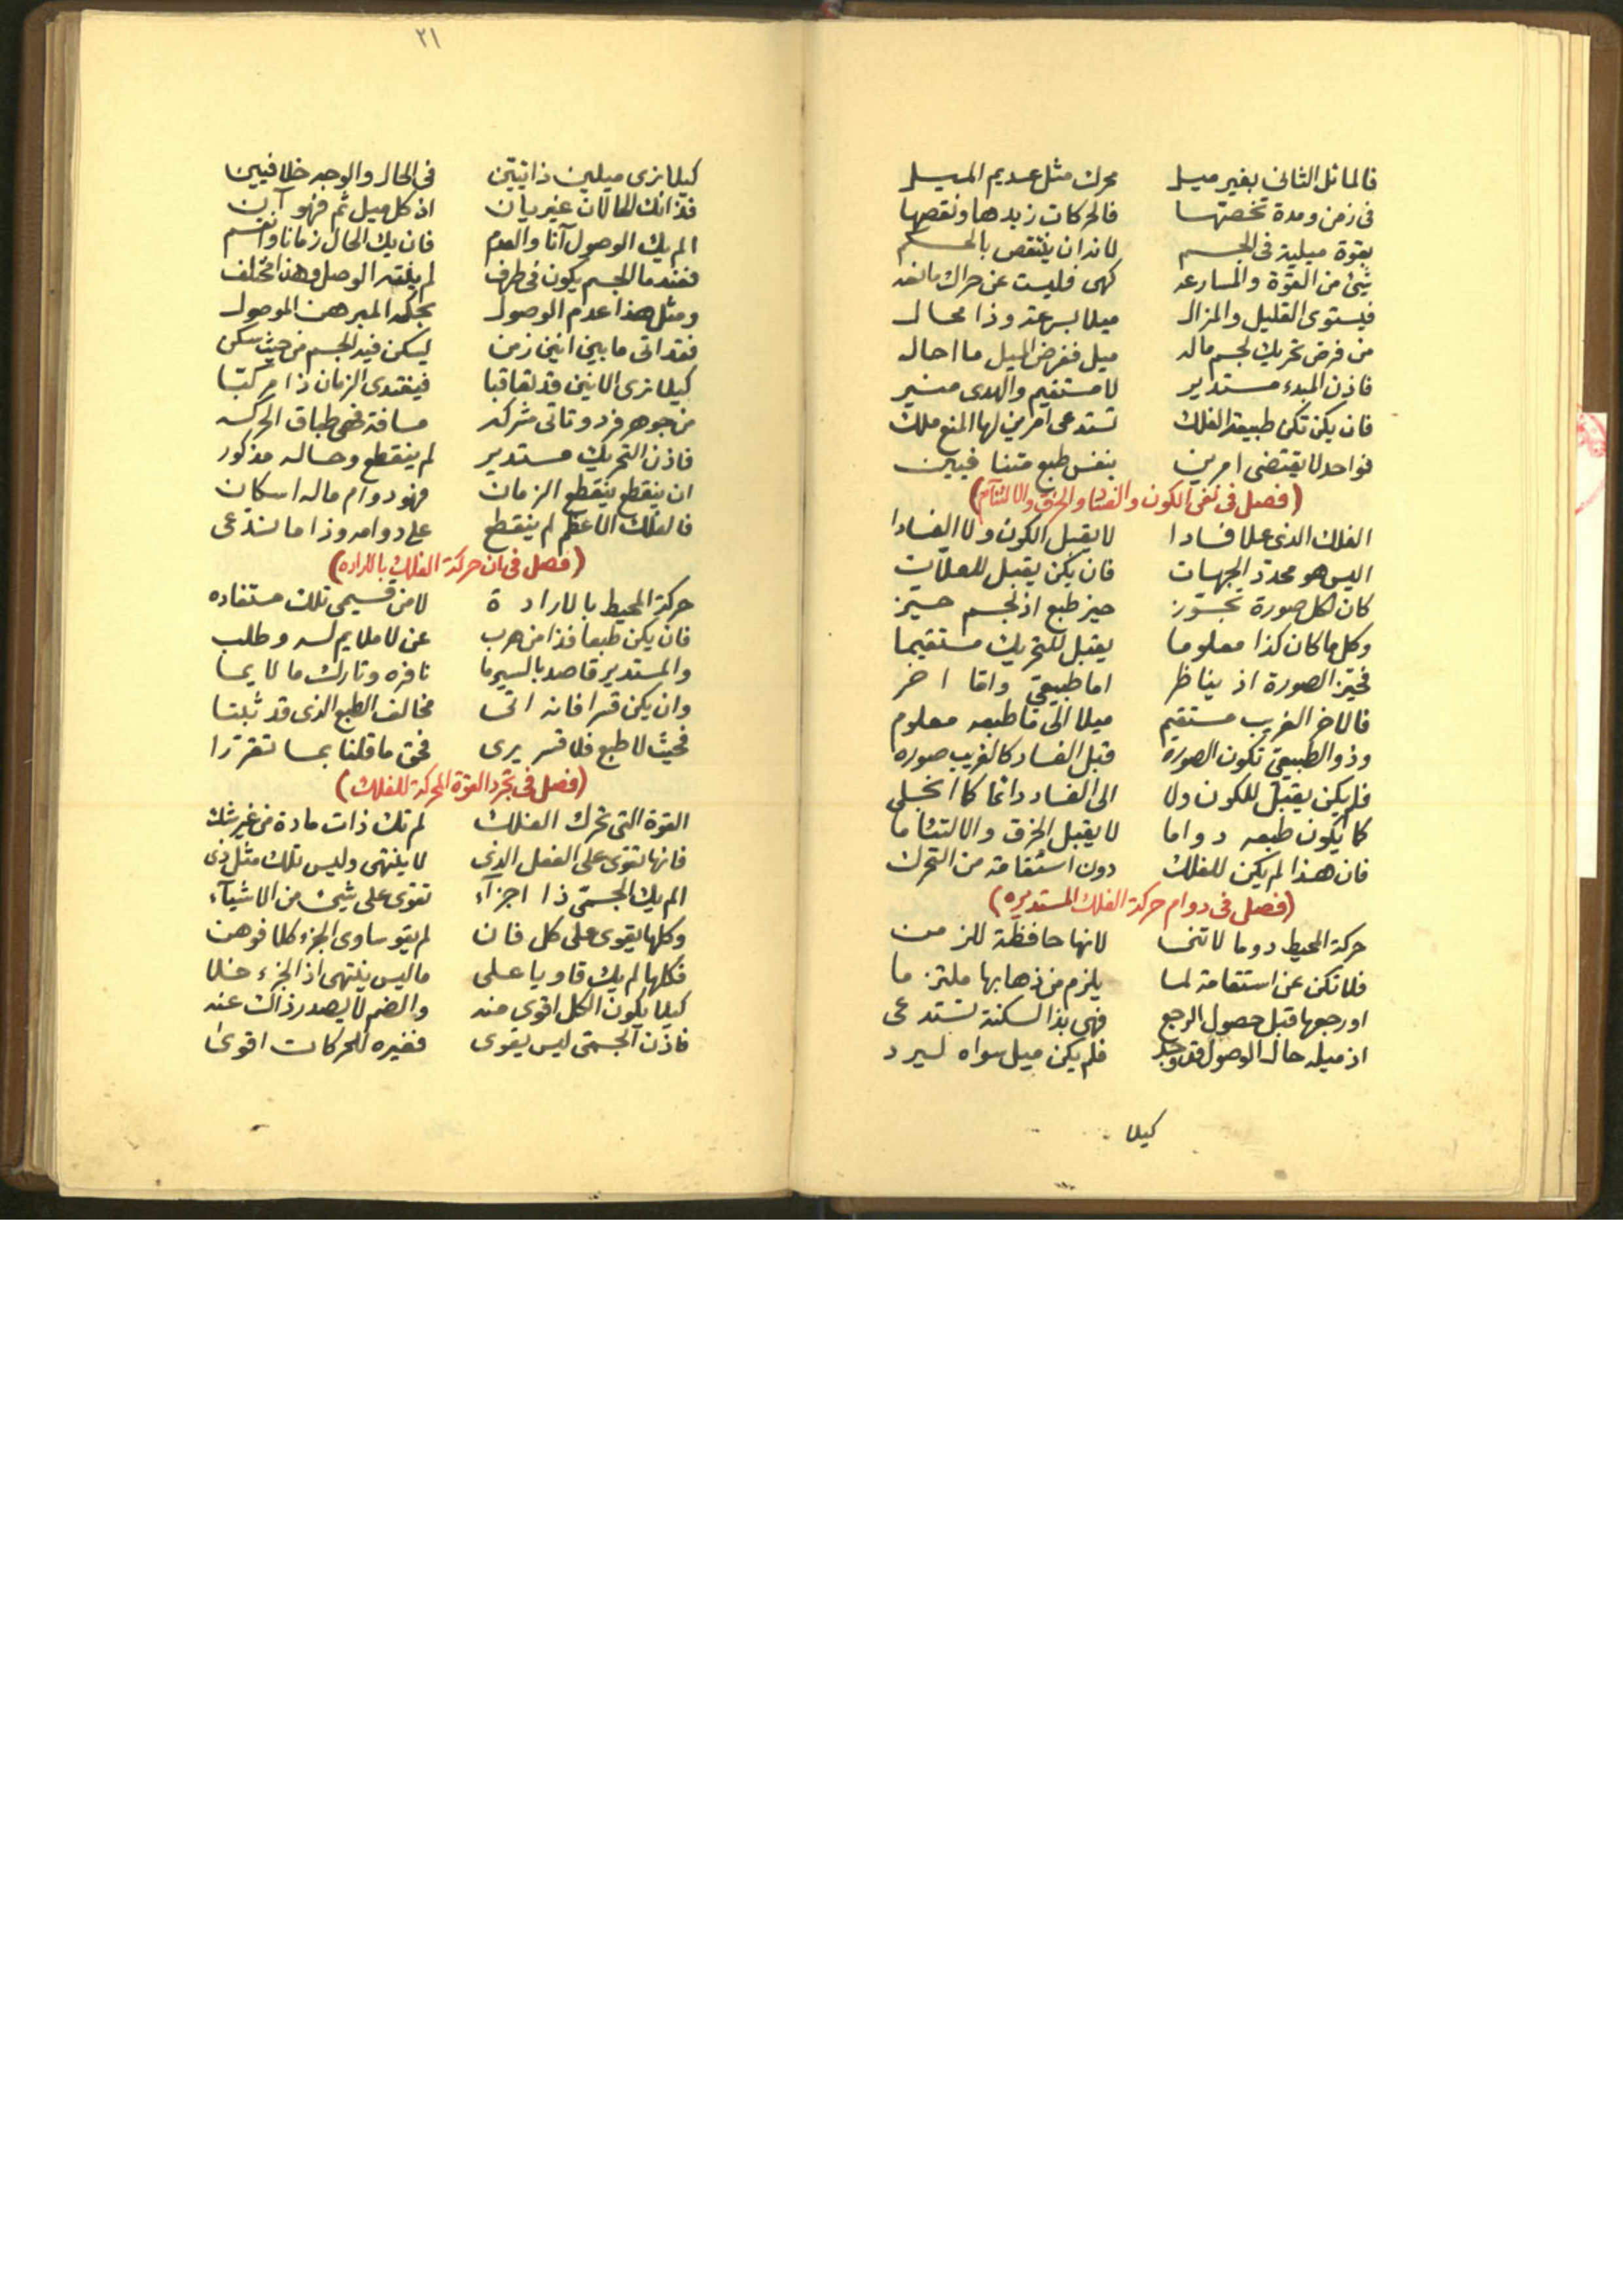 فالماثل الثانى بغير ميل محرك مثل عديم الميل
فى زمن ومدة تخصتها فالحركات زيدها ونقصها
بقوة ميلية فى الجسم لاند ان ينتقص بالحسم
شئ من القوة والمسارعه كهى فليست عن حراك مانعه
فيستوى القليل والمزال ميلا بسرعة وذا محال
من فرض تحريك لجسم ماله ميل ففرض الميل ما احاله
فاذن المبدء مستدير لا مستقيم والهدى منير
فان يكن تكن طبيعة الفلك تستدعى امرين لها المنع ملك
فواحد لا يقتضى امرين بنفس طبع متنافيين
(فصل فى نفى الكون والفساد والخرق والالتئام)
الفلك الذى علا فسادا لا يقبل الكون ولا الفسادا
اليس هو محدد الجهات فان يكن يقبل للعلات
كان لكل صورة تجوز حيز طبع اذ لجسم حيز
وكل ما كان كذا معلوما يقبل للتحريك مستقيما
فحيز الصورة اذ يناظر اما طبيعى واما اخر
فالاخر الغريب مستقيم ميلا الى ما طبعه معلوم
وذو الطبيعى تكون الصوره قبل الفساد كالغريب صوره
فلم يكن يقبل للكون ولا الى الفساد دائما كما انجلى
كما يكون طبعه دواما لا يقبل الخرق والالتئاما
فان هذا لم يكن للفلك دون استقامة من التحرك
(فصل فى دوام حركة الفلك المستديره)
حركة المحيط دوما لا تنحسا لانها حافظة للزمن
فلا تكن عن استقامة لما يلزم من ذهابها ملتزما
او رجعها قبل حصول الرجع فهى بذا لسكنة تستدعى
اذ ميله حال الوصول قد وجد فلم يكن ميل سواه ليرد
كيلا
٢١
كيلا نرى ميلين ذاتيين فى الحال والوجه خلافيين
فذانك الحالان غير يان اذ كل ميل ثم فهو آن
الم يك الوصول آنا والعدم فان يك الحال زمانا وانقسم
فعند ما الجسم يكون فى طرف لم يلقه الوصل وهذا مختلف
ومثل هذا عدم الوصول بحكمه المبرهن الموصول
فقد اتى ما بين انين زمن ليسكن فيه الجسم من حيث سكن
كيلا نرى الانين قد تعاقبا فيغتدى الزمان ذا مركبا
من جوهر فرد وتاتى مشركه مسافة فهى طباق الحركه
فاذن التحريك مستدير لم ينقطع وحاله مذكور
ان ينقطع ينقطع الزمان فهو دوام ماله اسكان
فالفلك الاعظم لم ينقطع على دوامه وذا ما ندعى
(فصل فى ان حركة الفلك بالاراده)
حركة المحيط بالارادة لا من قسيمى تلك مستفاده
فان يكن طبعا فذا من هرب عن لا ملايم له وطلب
والمستدير قاصد بالسير ما نافره وتارك ما لا يما
وان يكن قسرا فانه اتى مخالف الطبع الذى قد ثبتا
فحيث لا طبع فلا قسر يرى فحق ما قلنا بما تقررا
(فصل فى تجرد القوة المحركة للفلك)
القوة التى تحرك الفلك لم تك ذات مادة من غير شك
فانها تقوى على الفعل الذى لا ينتهى وليس تلك مثل ذى
الم يك الجسمى ذا اجزآء تقوى على شيئ من الاشيآء
وكلها يقوى على كل فان لم يقو ساوى الجزء كلا فوهن
فكلها لم يك قاويا على ما ليس ينتهى اذ الجزء خلا
كيلا يكون الكل اقوى منه والضم لا يصدر ذاك عنه
فاذن الجسمى ليس يقوى فغيره للحركات اقوى